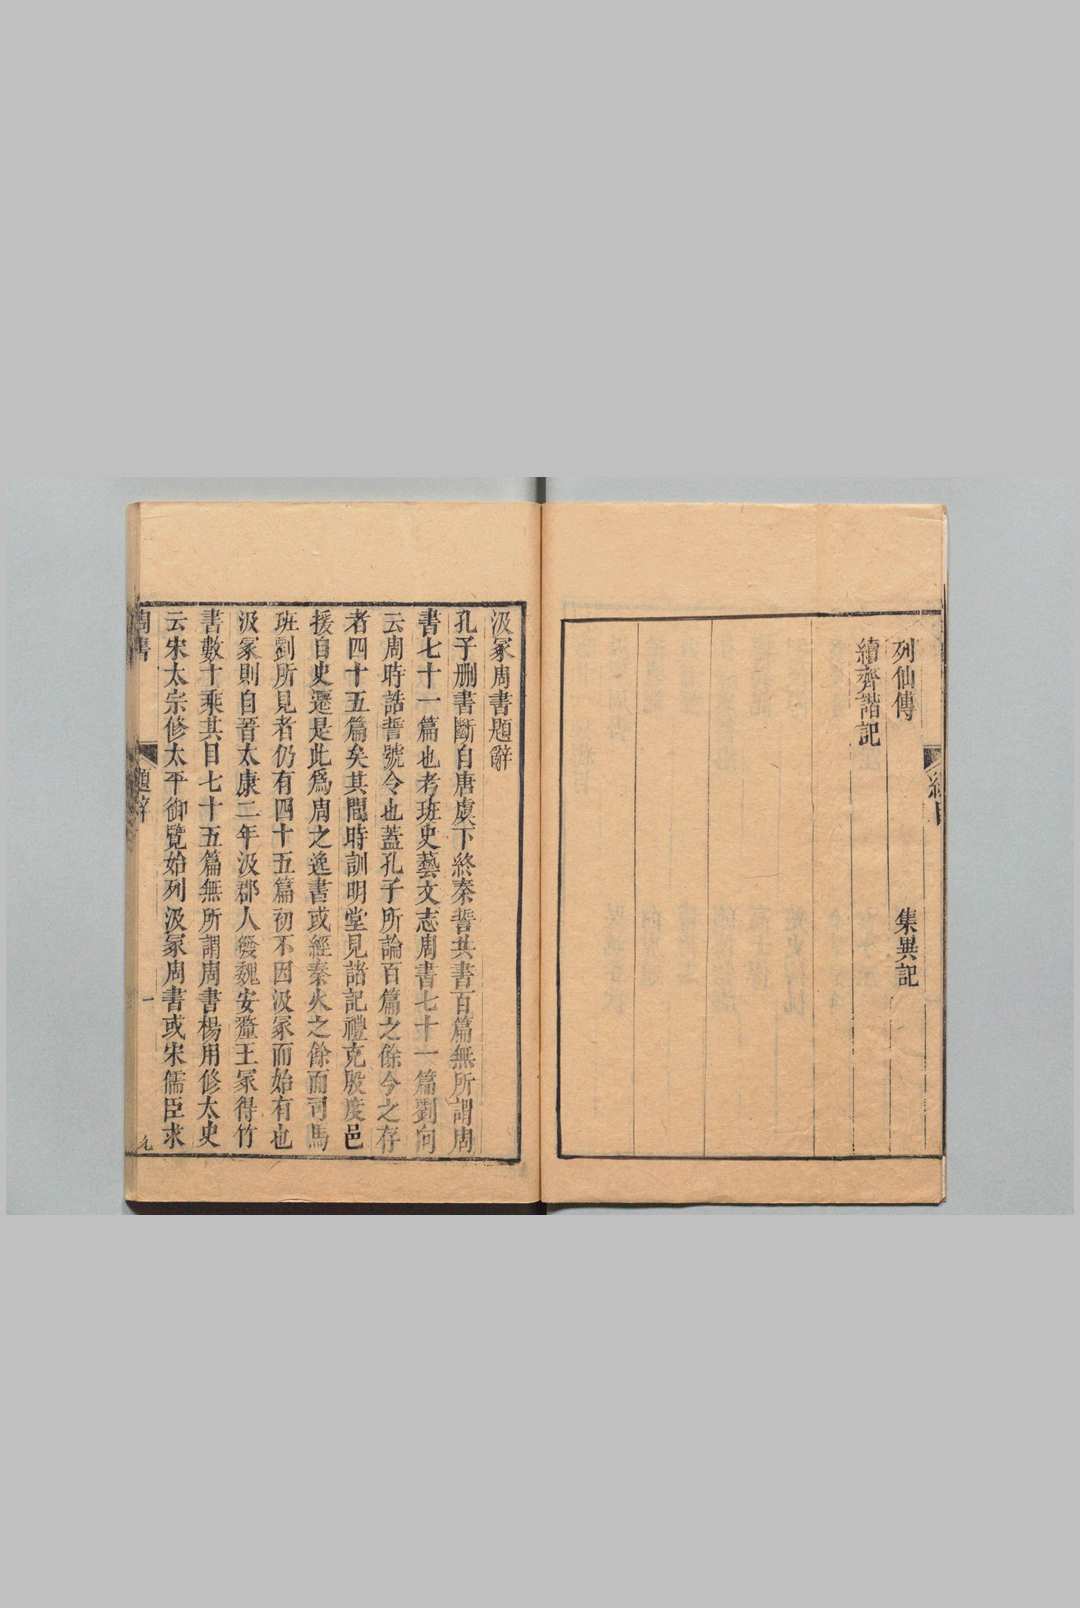 列仙傳　集異記
續齊諧記
汲冢周書題辭
孔子刪書斷自唐虞下終秦誓共書百篇無所謂周
書七十一篇也考班史藝文志周書七十一篇劉向
云周時誥誓號令也蓋孔子所論百篇之餘今之存
者四十五篇矣其間時訓明堂見諸記禮克殷度邑
援自史遷是此爲周之逸書或經秦火之餘而司馬
班劉所見者仍有四十五篇初不因汲冢而始有也
汲冢則自晉太康二年汲郡人發魏安釐王冢得竹
書數十乘其目七十五篇無所謂周書楊用修太史
云宋太宗修太平御覽始列汲冢周書或宋儒臣求
周書　題辭　一